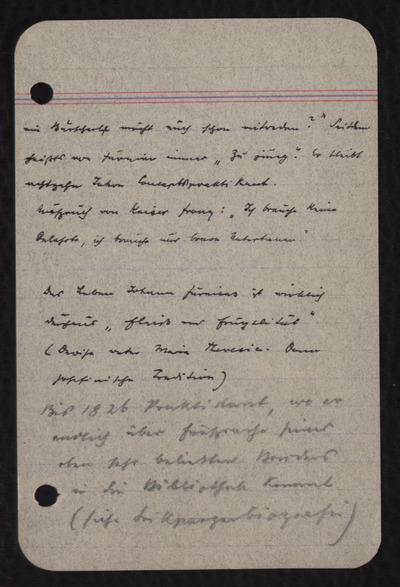 ein Bursche möcht auch schon mitreden?" Seitdem
heißts von immer „Zu jung". Er bleibt
achtzehn Jahre Conceptspraktikant.
Ausspruch von Kaiser Franz: „Ich brauche keine
Gelehrte, ich brauche nur brave Unterthanen"
Das Leben Johann ist wirklich
durchaus „Fleiß und Frugalität"
(Devise unter Maria Theresia. Dann
josefinische Tradition)
Bis 1826 Praktikant, wo er
endlich über Fürsprache seines
eben sehr beliebten Bruders
in die Bibliothek kommt
(siehe die Biografie)